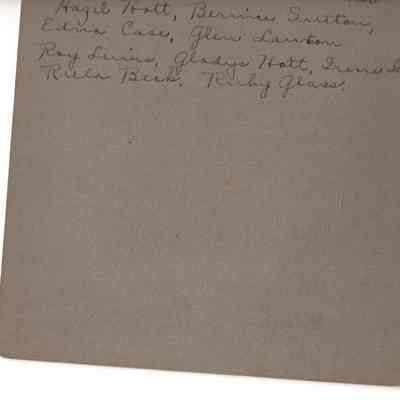 Hazel Hott, Bernice Sutton,
Edna Case, Glen Lawton
Roy Lewis, Gladys Hott, Irene
Riela Beck. Ruby Glass.